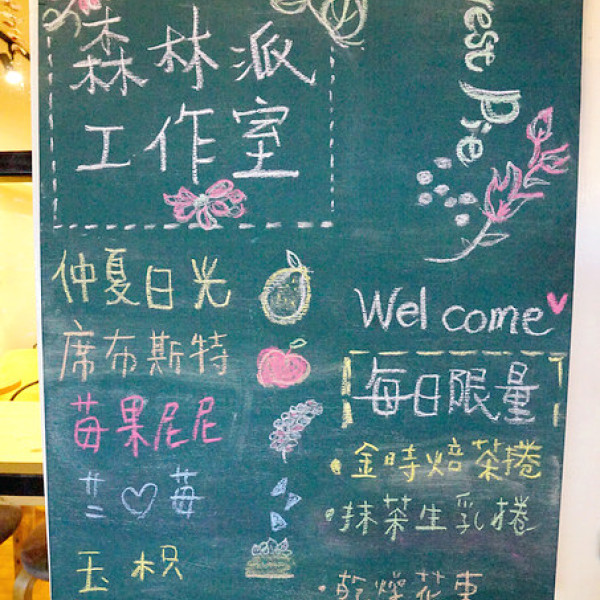 森林派
工作室
rest Pie
仲夏日光
席布斯特
莓果尼尼
芒♡莓
玉枳
Welcome
每日限量
·金時焙茶捲
·抹茶生乳捲
·乾燥花束